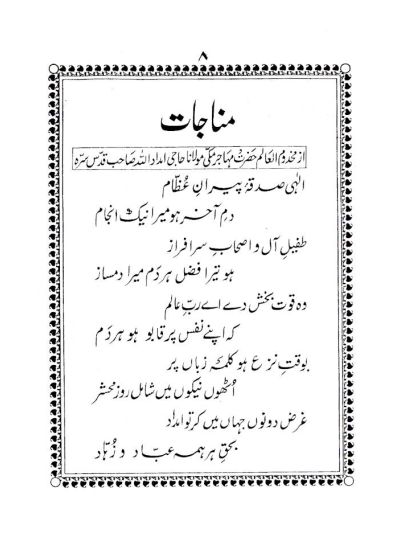 ۸
مناجات
از مخدوم العالم حضرت مہاجر مکی مولانا حاجی امداد اللہ صاحب قدس سرہ
الٰہی صدقۂ پیرانِ عُظّام
دمِ آخر ہو میرا نیک انجام
طفیلِ آل و اصحابِ سرافراز
ہو تیرا فضل ہر دَم میرا دمساز
وہ قوت بخش دے اے ربِّ عالم
کہ اپنے نفس پر قابو ہو ہر دَم
بوقتِ نزع ہو کلمہ زباں پر
اُٹھوں نیکوں میں شامل روزِ محشر
غرض دونوں جہاں میں کر تو امداد
بحقِ ہر ہمہ عبّاد و زُہّاد